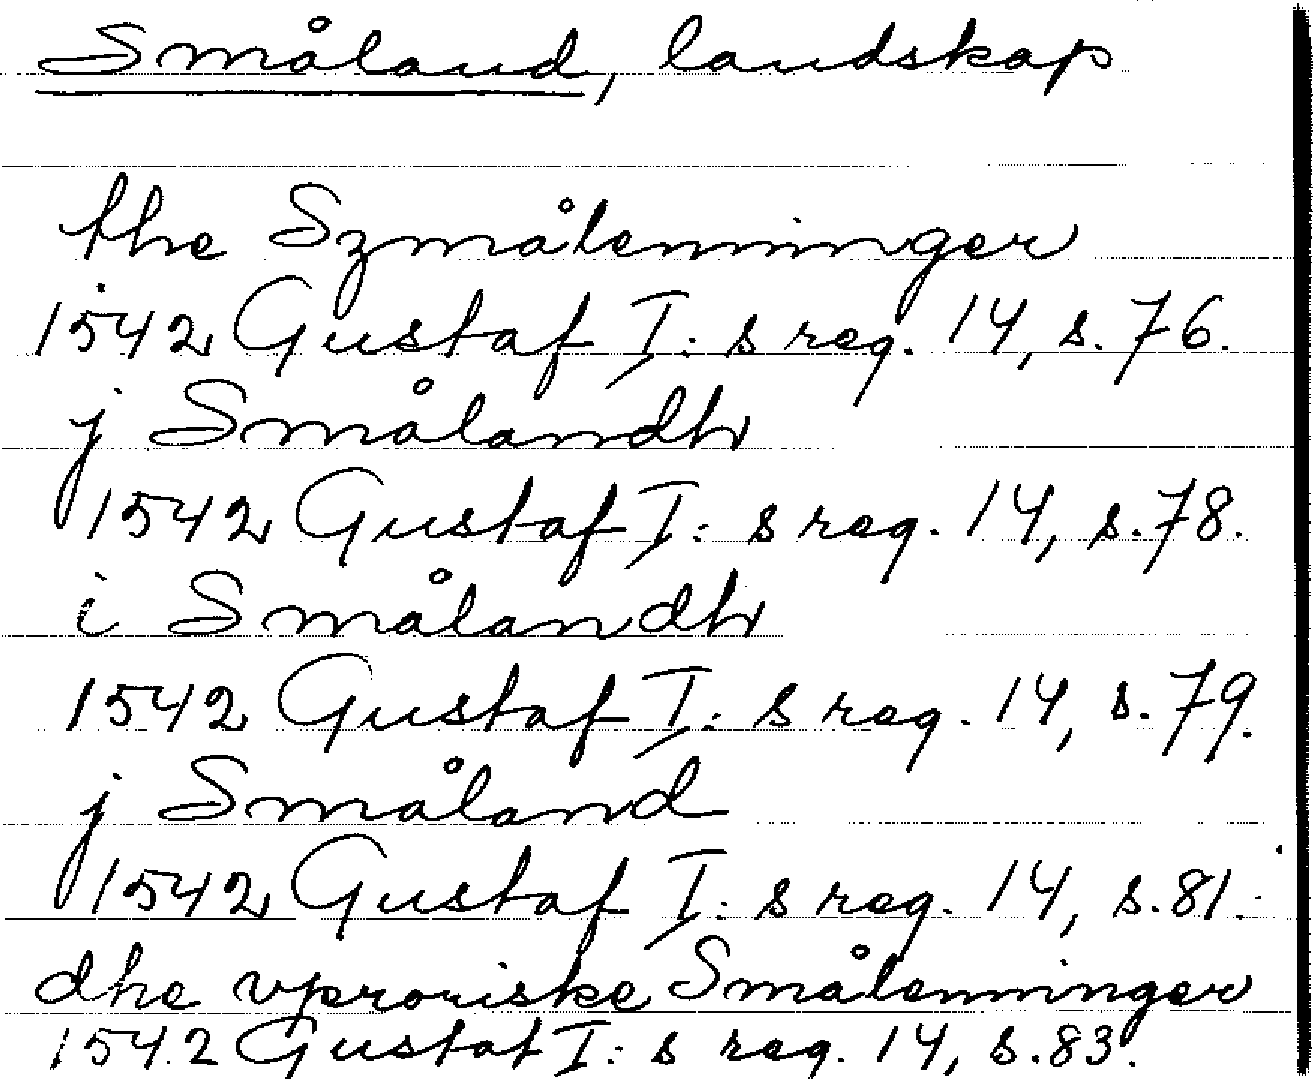 Småland, landskap
the Szmålenninger
1542 Gustaf I: s reg. 14, s. 76.
j Smålandh
1542 Gustaf I: s reg. 14, s. 78.
i Smålandh
1542 Gustaf I: s reg. 14, s. 79.
j Småland
1542 Gustaf I: s reg. 14, s. 81.
dhe vproriske Smålenninger
1542 Gustaf I: s reg. 14, s. 83.